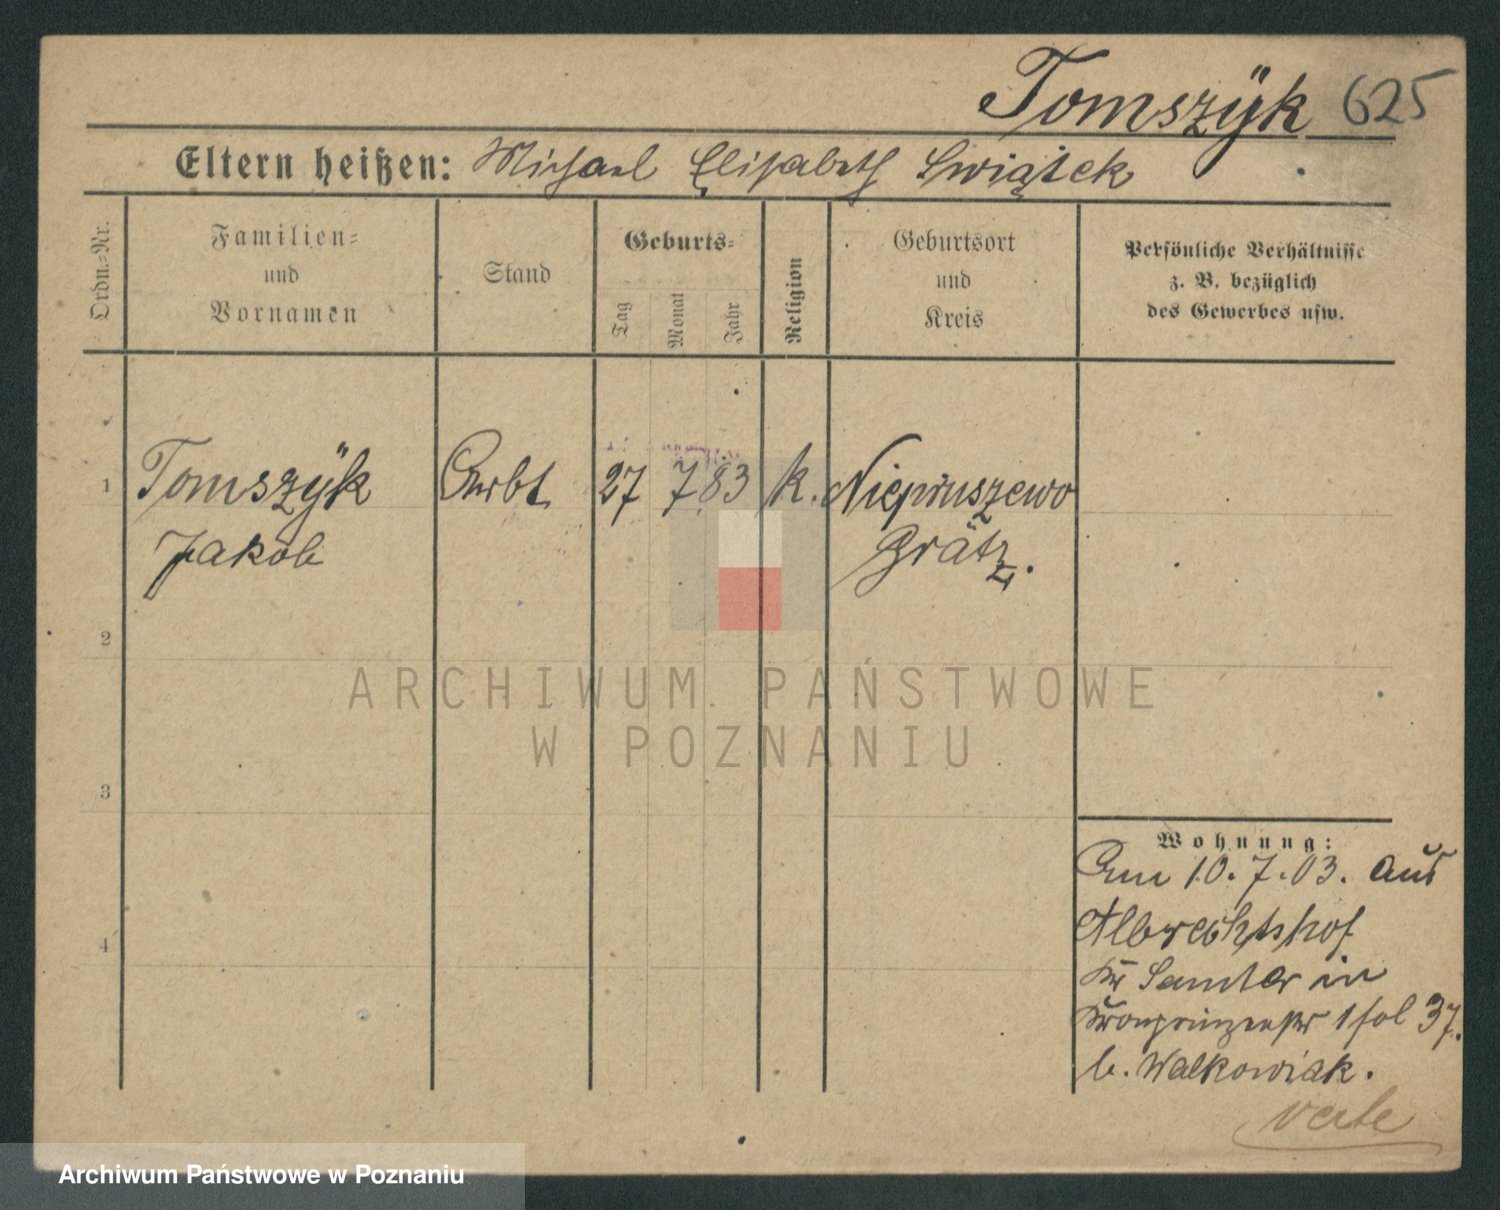 Tomszÿk 625
Eltern heißen: Michael Elisabeth Swiątek
Ordn.=Nr.
Familien=
und
Vornamen
Stand
Geburts=
Tag
Monat
Jahr
Religion
Geburtsort
und
Kreis
Persönliche Verhältnisse
z. B. bezüglich
des Gewerbes usw.
1 Tomszÿk Arbt 27 7 83 k. Niepruszewo
Jakob Grätz.
2
3
4
ARCHIWUM PAŃSTWOWE
W POZNANIU
Wohnung:
Am 10.7.03. aus
Albrechtshof
Kr Samter in
Kronprinzenstr 1 fol 37.
b. Walkowiak.
verte
Archiwum Państwowe w Poznaniu